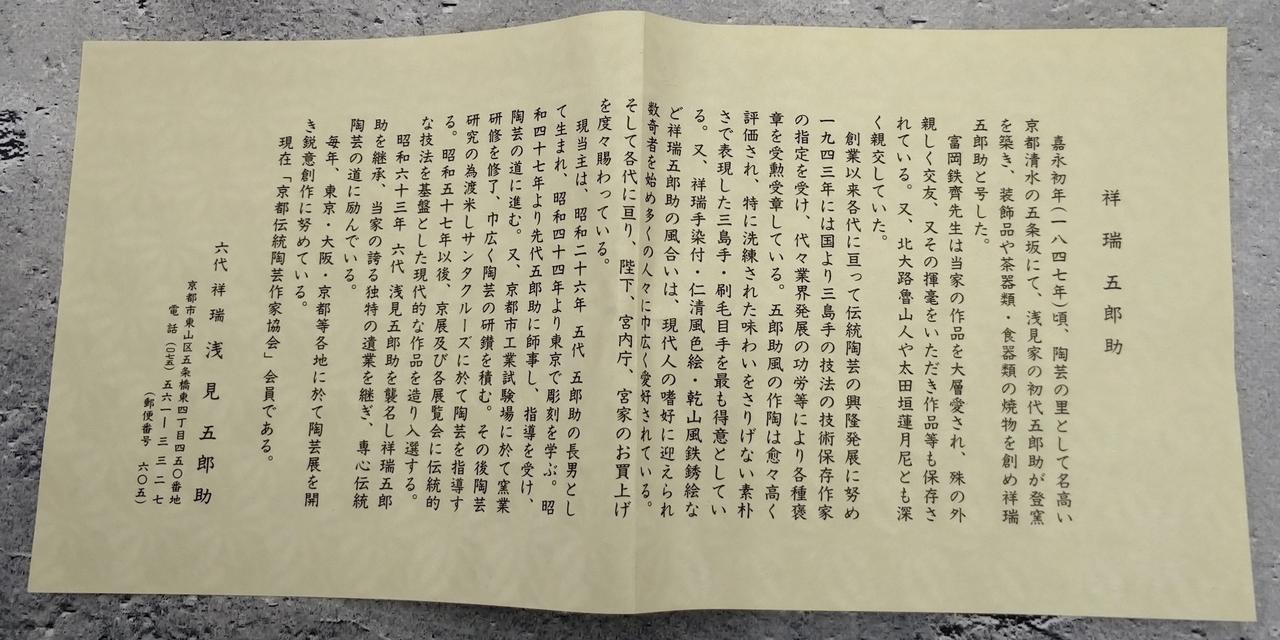 祥瑞五郎助
嘉永初年(一八四七年)頃、陶芸の里として名高い
京都清水の五条坂にて、浅見家の初代五郎助が登窯
を築き、装飾品や茶器類・食器類の焼物を創め祥瑞
五郎助と号した。
富岡鉄齊先生は当家の作品を大層愛され、殊の外
親しく交友、又その揮毫をいただき作品等も保存さ
れている。又、北大路魯山人や太田垣蓮月尼とも深
く親交していた。
創業以来各代に亘って伝統陶芸の興隆発展に努め
一九四三年には国より三島手の技法の技術保存作家
の指定を受け、代々業界発展の功労等により各種褒
章を受勲受章している。五郎助風の作陶は愈々高く
評価され、特に洗練された味わいをさりげない素朴
さで表現した三島手・刷毛目手を最も得意としてい
る。又、祥瑞手染付・仁清風色絵・乾山風鉄銹絵な
ど祥瑞五郎助の風合いは、現代人の嗜好に迎えられ
数奇者を始め多くの人々に巾広く愛好されている。
そして各代に亘り、陛下、宮内庁、宮家のお買上げ
を度々賜わっている。
現当主は、昭和二十六年 五代 五郎助の長男とし
て生まれ、昭和四十四年より東京で彫刻を学ぶ。昭
和四十七年より先代五郎助に師事し、指導を受け、
陶芸の道に進む。又、京都市工業試験場に於て窯業
研修を修了、巾広く陶芸の研鑽を積む。その後陶芸
研究の為渡米しサンタクルーズに於て陶芸を指導す
る。昭和五十七年以後、京展及び各展覧会に伝統的
な技法を基盤とした現代的な作品を造り入選する。
昭和六十三年 六代 浅見五郎助を襲名し祥瑞五郎
助を継承、当家の誇る独特の遺業を継ぎ、専心伝統
陶芸の道に励んでいる。
毎年、東京・大阪・京都等各地に於て陶芸展を開
き鋭意創作に努めている。
現在「京都伝統陶芸作家協会」会員である。
六代 祥瑞 浅見五郎助
京都市東山区五条橋東四丁目四五〇番地
電話(〇七五)五六一ー三三二七
(郵便番号 六〇五)